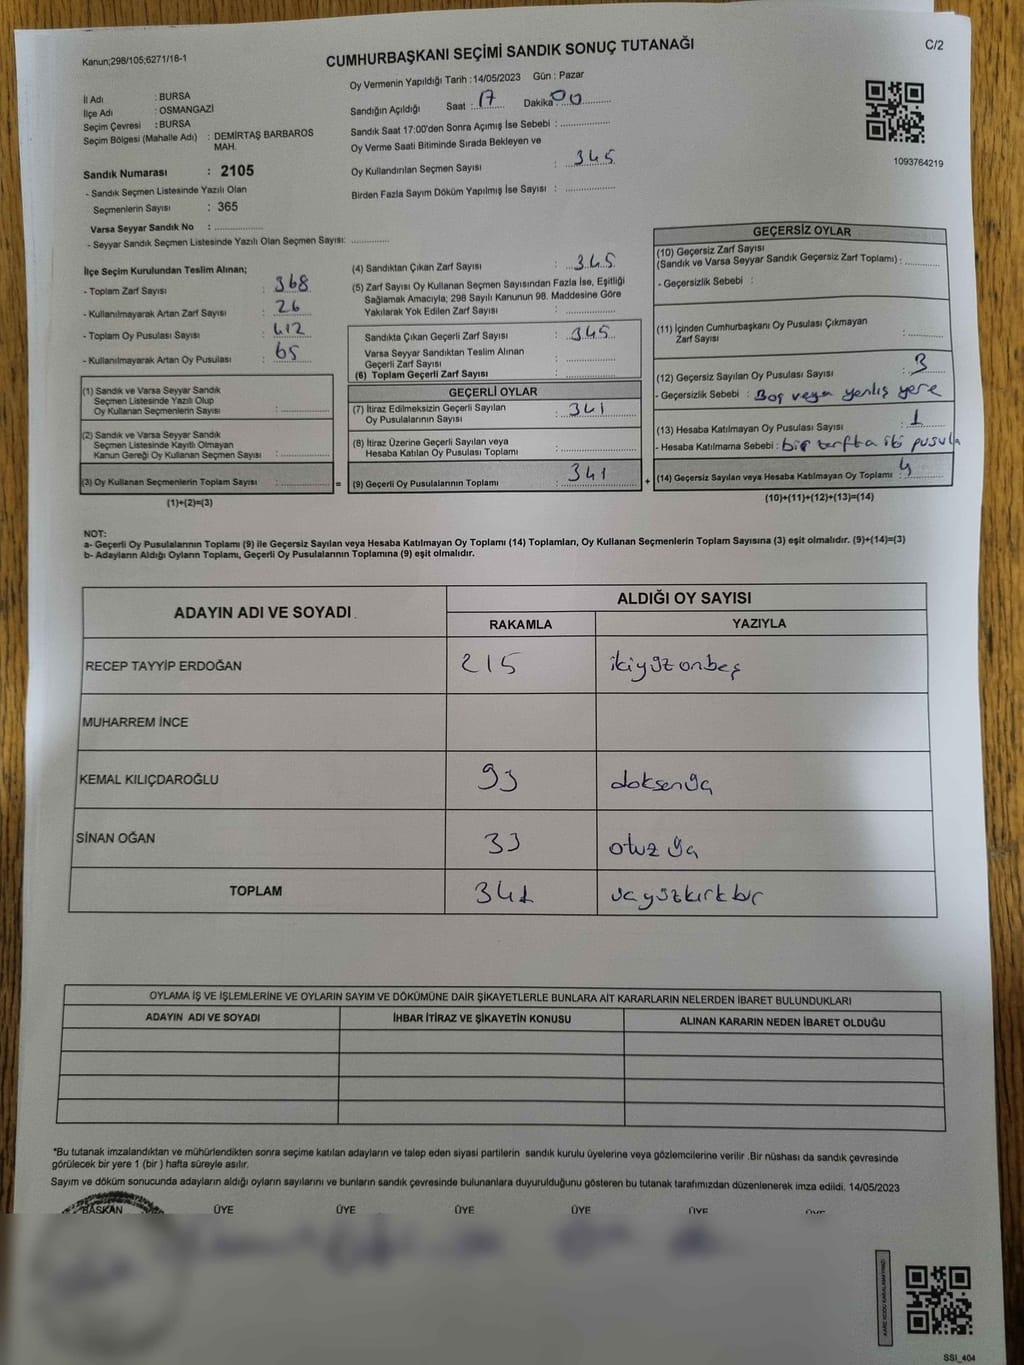 Kanun;298/105;6271/18-1
CUMHURBAŞKANI SEÇİMİ SANDIK SONUÇ TUTANAĞI
C/2
İl Adı : BURSA
İlçe Adı : OSMANGAZİ
Seçim Çevresi : BURSA
Seçim Bölgesi (Mahalle Adı) : DEMİRTAŞ BARBAROS
MAH.
Sandık Numarası : 2105
- Sandık Seçmen Listesinde Yazılı Olan
Seçmenlerin Sayısı : 365
Varsa Seyyar Sandık No : ...............
- Seyyar Sandık Seçmen Listesinde Yazılı Olan Seçmen Sayısı: ............
Oy Vermenin Yapıldığı Tarih : 14/05/2023 Gün : Pazar
Sandığın Açıldığı Saat : 17 Dakika 00
Sandık Saat 17:00'den Sonra Açımış İse Sebebi : ...............
Oy Verme Saati Bitiminde Sırada Bekleyen ve
Oy Kullandırılan Seçmen Sayısı : 345
Birden Fazla Sayım Döküm Yapılmış İse Sayısı : ...............
1093764219
İlçe Seçim Kurulundan Teslim Alınan;
- Toplam Zarf Sayısı : 368
- Kullanılmayarak Artan Zarf Sayısı : 26
- Toplam Oy Pusulası Sayısı : 412
- Kullanılmayarak Artan Oy Pusulası : 65
(1) Sandık ve Varsa Seyyar Sandık
Seçmen Listesinde Yazılı Olup
Oy Kullanan Seçmenlerin Sayısı : ...............
(2) Sandık ve Varsa Seyyar Sandık
Seçmen Listesinde Kayıtlı Olmayan
Kanun Gereği Oy Kullanan Seçmen Sayısı : ...............
(3) Oy Kullanan Seçmenlerin Toplam Sayısı : ............... =
(1)+(2)=(3)
(4) Sandıktan Çıkan Zarf Sayısı : 345
(5) Zarf Sayısı Oy Kullanan Seçmen Sayısından Fazla İse, Eşitliği
Sağlamak Amacıyla; 298 Sayılı Kanunun 98. Maddesine Göre
Yakılarak Yok Edilen Zarf Sayısı : ...............
Sandıkta Çıkan Geçerli Zarf Sayısı : 345
Varsa Seyyar Sandıktan Teslim Alınan
Geçerli Zarf Sayısı : ...............
(6) Toplam Geçerli Zarf Sayısı : ...............
GEÇERLİ OYLAR
(7) İtiraz Edilmeksizin Geçerli Sayılan
Oy Pusulalarının Sayısı : 341
(8) İtiraz Üzerine Geçerli Sayılan veya
Hesaba Katılan Oy Pusulası Toplamı : ...............
(9) Geçerli Oy Pusulalarının Toplamı : 341 +
GEÇERSİZ OYLAR
(10) Geçersiz Zarf Sayısı
(Sandık ve Varsa Seyyar Sandık Geçersiz Zarf Toplamı) : ............
- Geçersizlik Sebebi :
(11) İçinden Cumhurbaşkanı Oy Pusulası Çıkmayan
Zarf Sayısı : ............
(12) Geçersiz Sayılan Oy Pusulası Sayısı : 3
- Geçersizlik Sebebi : Boş veya yanlış yere
(13) Hesaba Katılmayan Oy Pusulası Sayısı : 1
- Hesaba Katılmama Sebebi : bir zarfta iki pusula
(14) Geçersiz Sayılan veya Hesaba Katılmayan Oy Toplamı : 4
(10)+(11)+(12)+(13)=(14)
NOT:
a- Geçerli Oy Pusulalarının Toplamı (9) ile Geçersiz Sayılan veya Hesaba Katılmayan Oy Toplamı (14) Toplamları, Oy Kullanan Seçmenlerin Toplam Sayısına (3) eşit olmalıdır. (9)+(14)=(3)
b- Adayların Aldığı Oyların Toplamı, Geçerli Oy Pusulalarının Toplamına (9) eşit olmalıdır.
ADAYIN ADI VE SOYADI
ALDIĞI OY SAYISI
RAKAMLA YAZIYLA
RECEP TAYYİP ERDOĞAN 215 ikiyüzonbeş
MUHARREM İNCE
KEMAL KILIÇDAROĞLU 93 doksanüç
SİNAN OĞAN 33 otuz üç
TOPLAM 341 üçyüzkırkbir
OYLAMA İŞ VE İŞLEMLERİNE VE OYLARIN SAYIM VE DÖKÜMÜNE DAİR ŞİKAYETLERLE BUNLARA AİT KARARLARIN NELERDEN İBARET BULUNDUKLARI
ADAYIN ADI VE SOYADI İHBAR İTİRAZ VE ŞİKAYETİN KONUSU ALINAN KARARIN NEDEN İBARET OLDUĞU
*Bu tutanak imzalandıktan ve mühürlendikten sonra seçime katılan adayların ve talep eden siyasi partilerin sandık kurulu üyelerine veya gözlemcilerine verilir .Bir nüshası da sandık çevresinde
görülecek bir yere 1 (bir ) hafta süreyle asılır.
Sayım ve döküm sonucunda adayların aldığı oyların sayılarını ve bunların sandık çevresinde bulunanlara duyurulduğunu gösteren bu tutanak tarafımızdan düzenlenerek imza edildi. 14/05/2023
BAŞKAN ÜYE ÜYE ÜYE ÜYE ÜYE ÜYE
KARE KODU KARALAMAYINIZ!
SSI_404